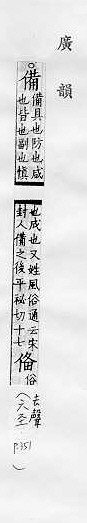 廣韻
。備
備具也防也咸
也皆也副也愼
也成也又姓風俗通云宋
封人備之後平祕切十七
俻
俗
去聲
〈六至〉
p.351